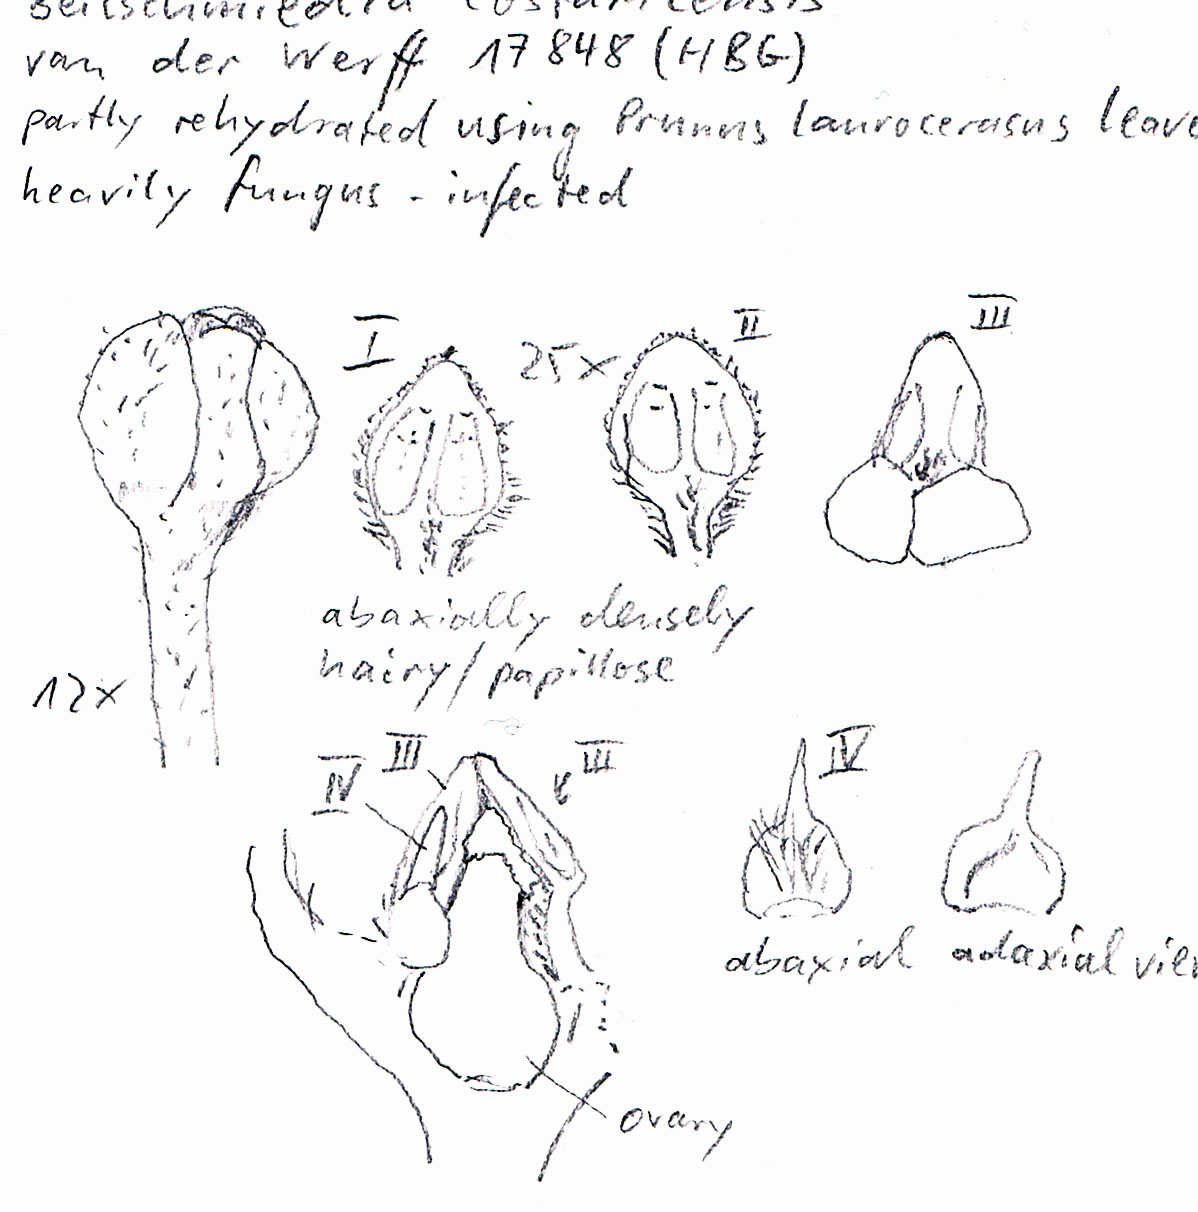 Beilschmiedia costaricensis
van der Werff 17848 (HBG)
partly rehydrated using Prunus laurocerasus leave
heavily fungus-infected
I
25x
II
III
abaxially densely
hairy/papillose
12x
IV
III
III
IV
abaxial adaxial view
ovary